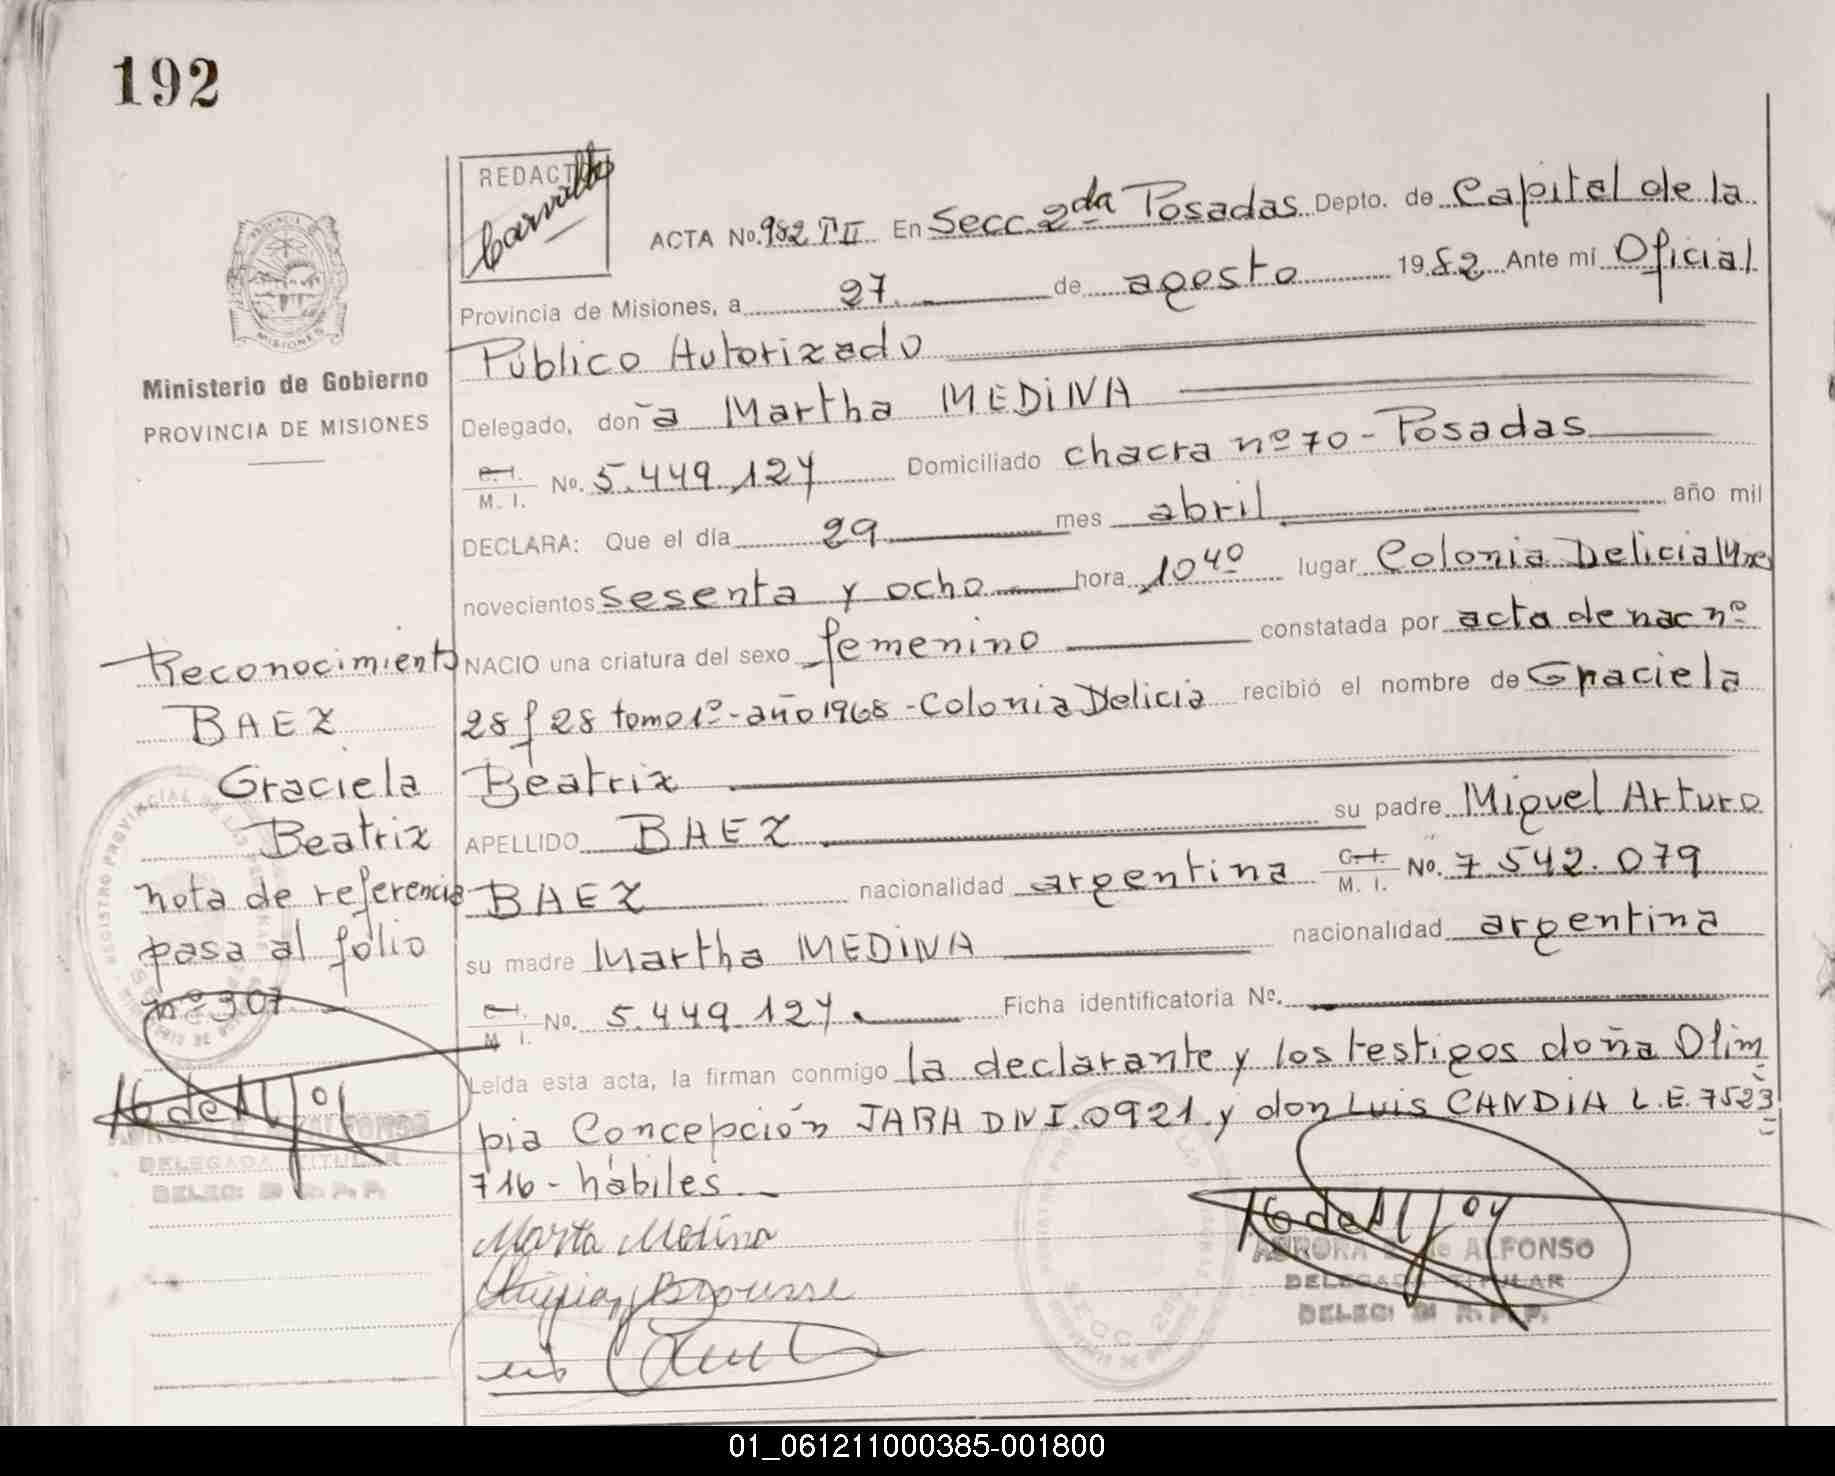 192
REDACT
Carvallo
ACTA No. 982 T II En Secc. 2da Posadas Depto. de Capital de la
Provincia de Misiones, a 27 de agosto 1982 Ante mí Oficial
Público Autorizado
Delegado, doña Martha MEDINA
C. I. M. I. No. 5.449.127 Domiciliado chacra nº 70 - Posadas
DECLARA: Que el día 29 mes abril año mil
novecientos sesenta y ocho hora 10 40 lugar Colonia Delicia Mnes
NACIO una criatura del sexo femenino constatada por acta de nac nº
28 f 28 tomo 1º - año 1968 - Colonia Delicia recibió el nombre de Graciela
Beatriz
APELLIDO BAEZ su padre Miguel Arturo
BAEZ nacionalidad argentina C. I. M. I. No. 7.542.079
su madre Martha MEDINA nacionalidad argentina
C. I. M. I. No. 5.449.127. Ficha identificatoria No.
Leída esta acta, la firman conmigo la declarante y los testigos doña Olim
pia Concepción JARA DNI. 0921. y don Luis CANDIA L.E. 7523
716 - hábiles
Marta Medina
AURORA de ALFONSO
DELEGADA TITULAR
DELEG: R.P.P.
MISIONES
Ministerio de Gobierno
PROVINCIA DE MISIONES
Reconocimiento
BAEZ
Graciela
Beatriz
nota de referencia
pasa al folio
nº 307.
ALFONSO
DELEGADA TITULAR
DELEG: R.P.P.
01_061211000385-001800